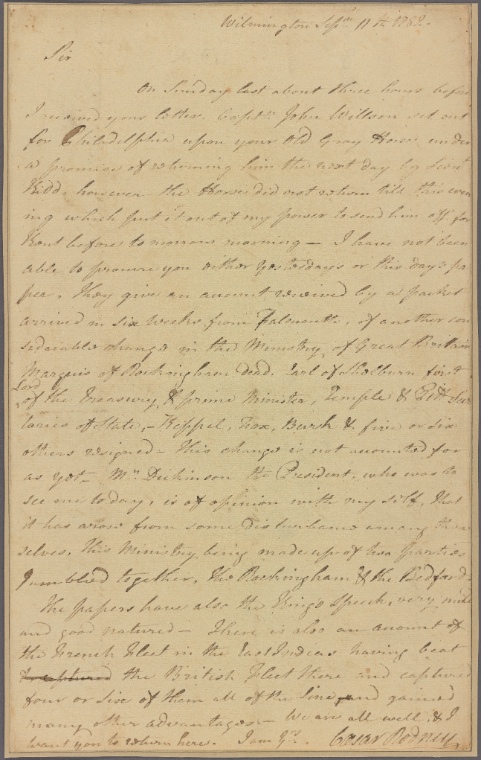 Wilmington Sepr. 11th 1782.
Sir
On Sunday last about three hours before
I received your letter. Capt. John Willson set out
for Philadelphia upon your Old Gray Horse under
a promise of returning him the next day by
Kidd, however the Horse did not return till this even
ing which put it out of my power to send him off for
Kent before to morrow morning — I have not been
able to procure you either Yesterdays or this days pa
per. They give an account received by a packet
arrived in six weeks from Falmouth, of another con
siderable change in the Ministry of Great Britain
Marquis of Rockingham dead. Earl of Shelburn first
Lord
of the Treasury, & prime Minister, Temple & Pitt Secre
taries of State, — Keppel, Fox, Burk & five or six
others resigned — This change is not accounted for
as yet — Mr. Dickinson the President, who was to
see me to day, is of opinion with my self, that
it has arose from some disturbance among them
selves, this Ministry being made up of two parties
jumbled together, the Rockingham & the Bedford —
The papers have also the Kings Speech, very mild
and good natured — There is also an account of
the French Fleet in the East Indies having beat
& captured the British Fleet there and captured
four or five of them all of the line, and gained
many other advantages — We are all well & I
want you to return here. I am Yrs. Cæsar Rodney